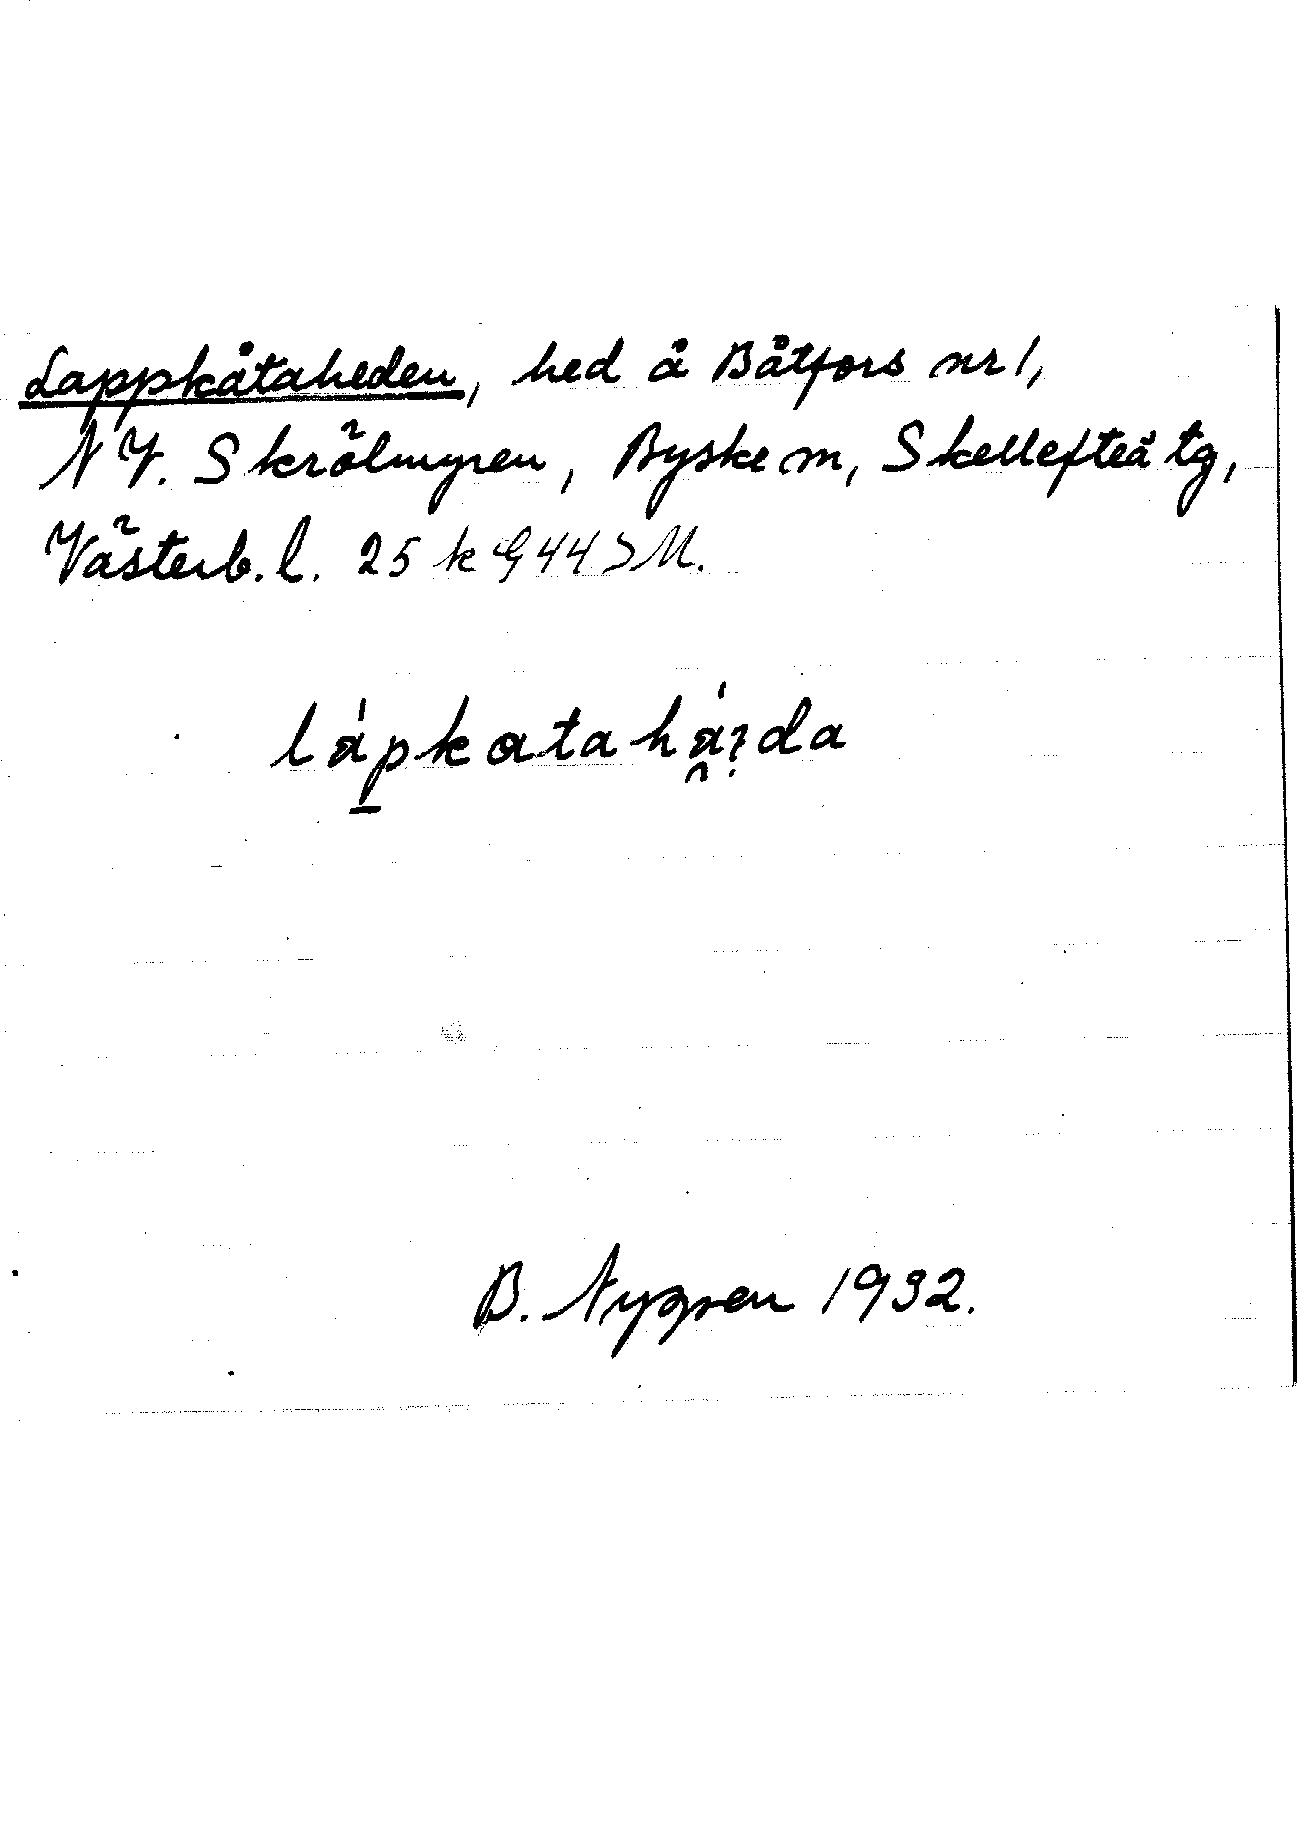 Lappkåtaheden, hed å Båtfors nr 1,
NV. Skrölmyren, Byske sn, Skellefteå tg,
Västerb. l. 25
lápkataháı̣da
B. Nygren 1932.